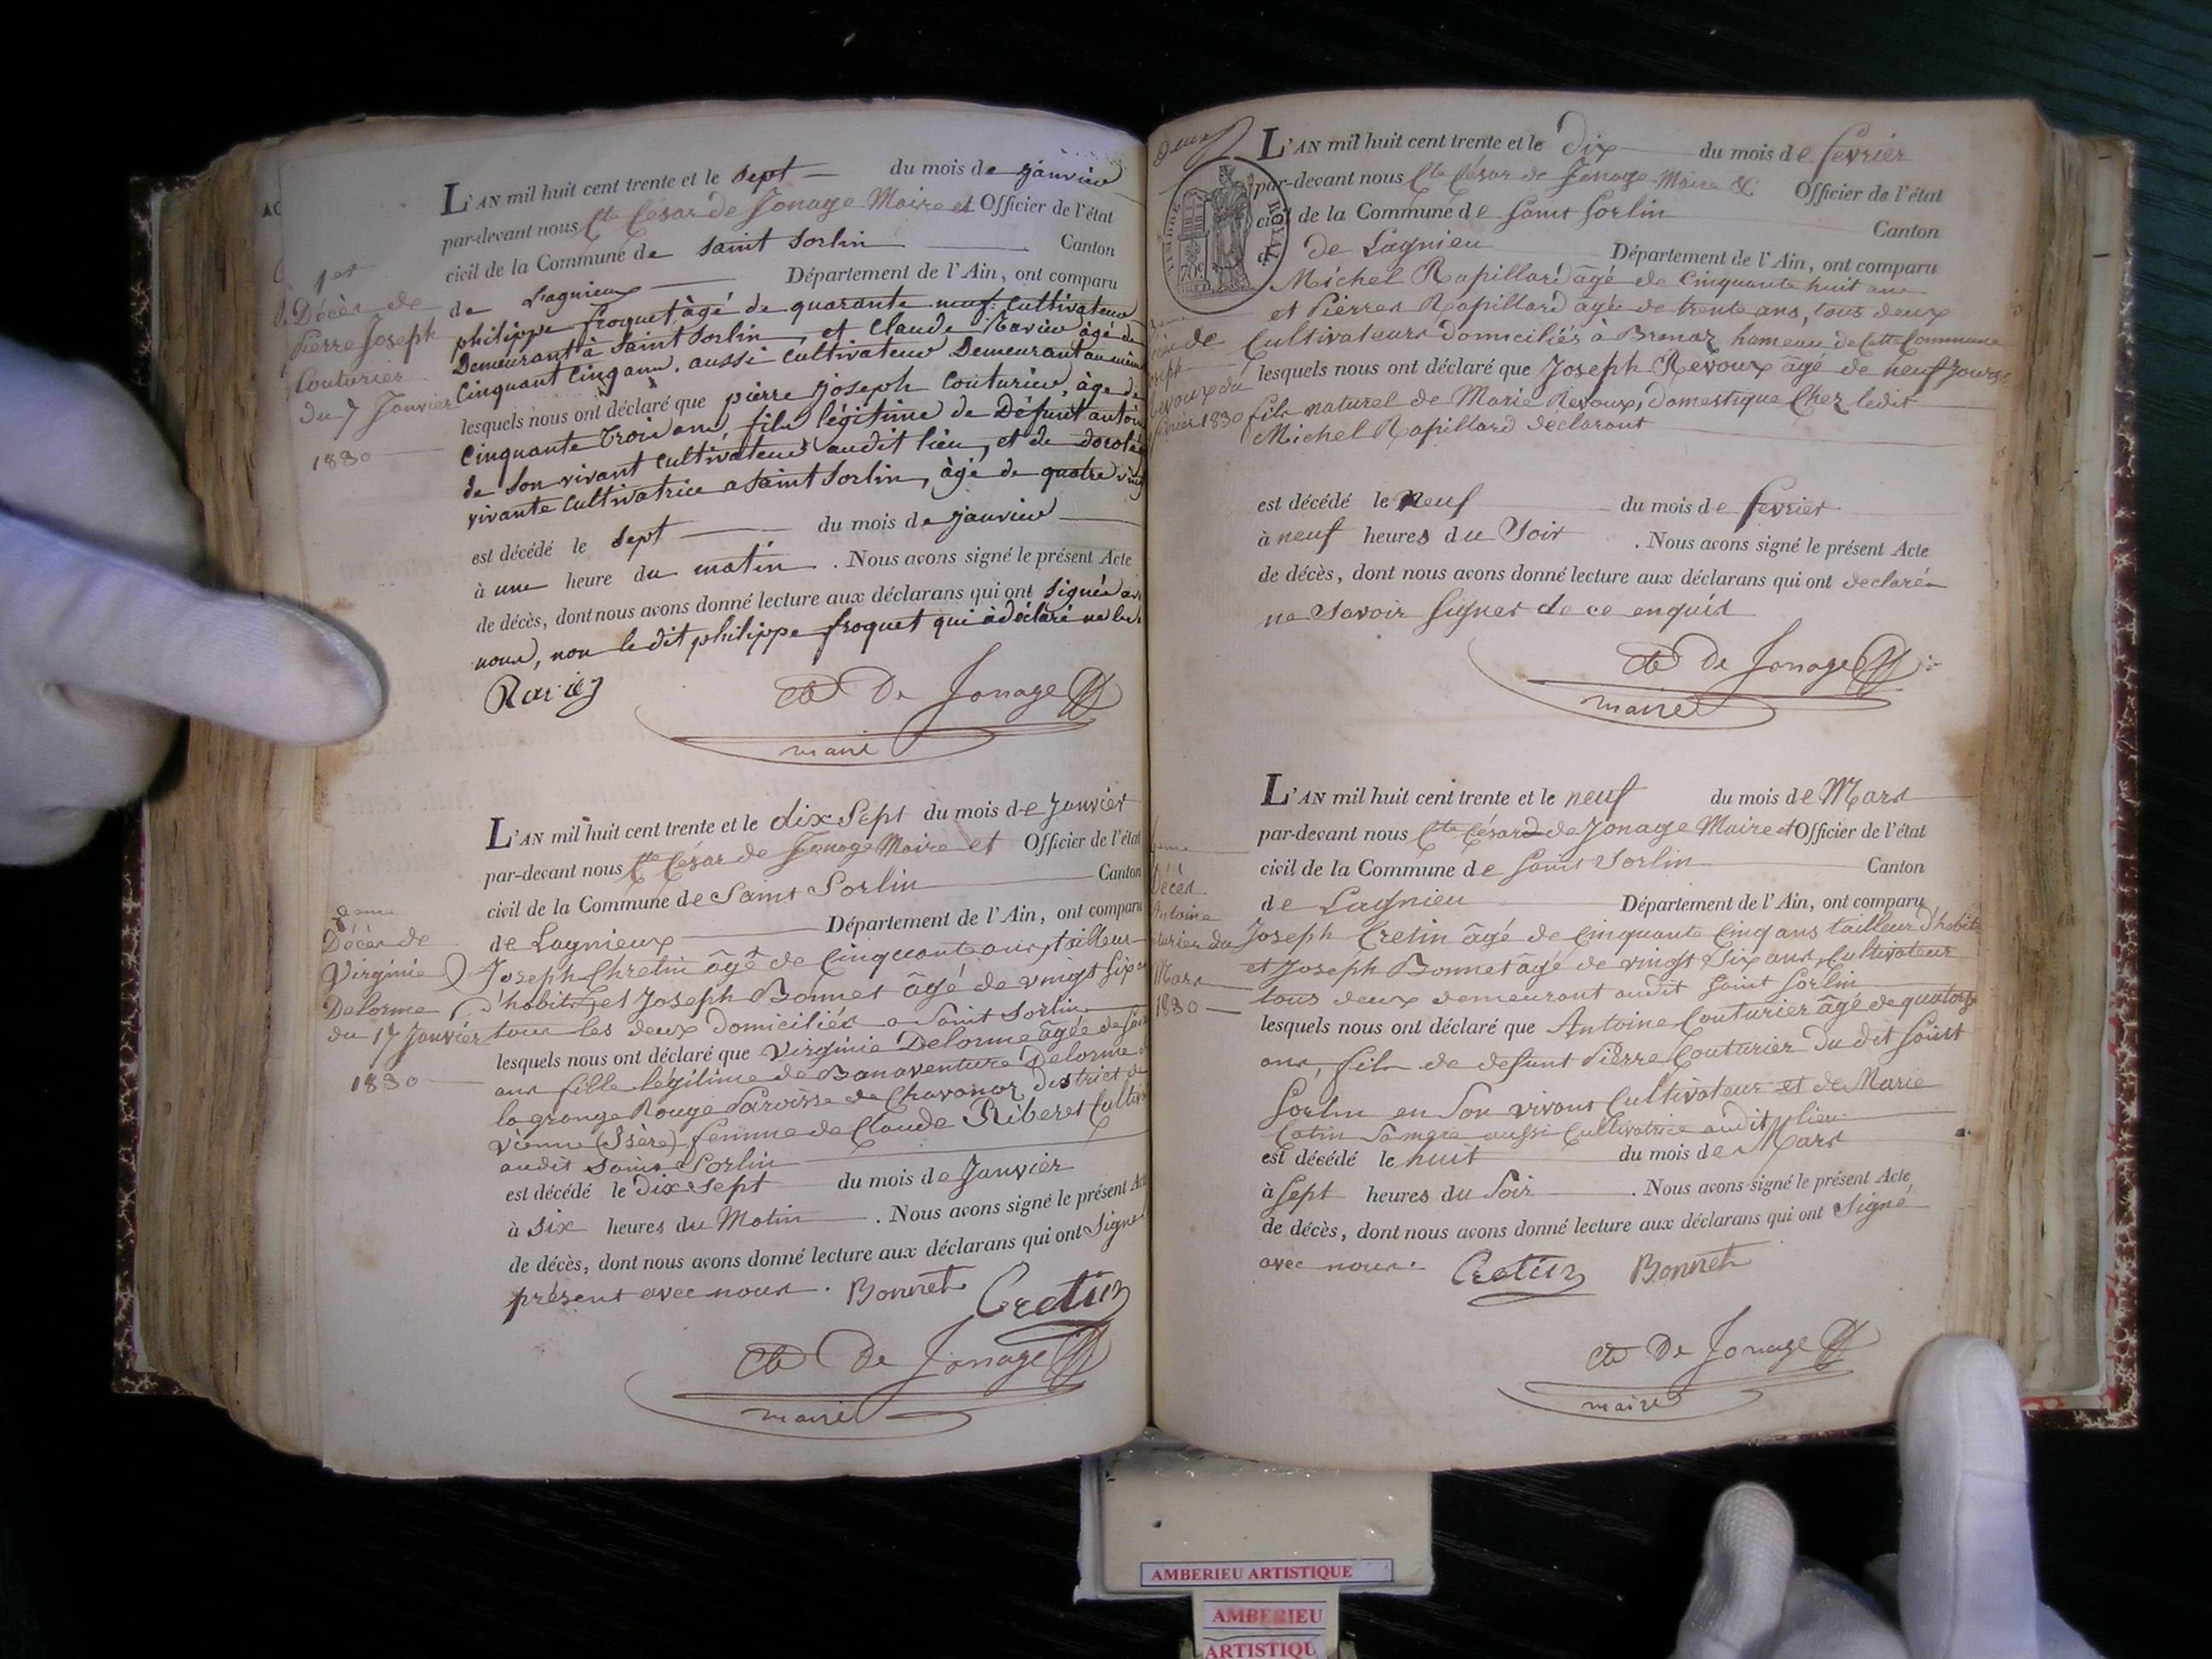 1er
Décès de
Pierre Joseph
Couturier
du 7 Janvier
1830
L'AN mil huit cent trente et le sept du mois de janvier
par-devant nous Cte César de Jonage Maire et Officier de l'état
civil de la Commune de saint Sorlin Canton
de Lagnieux Département de l'Ain, ont comparu
philippe froquet âgé de quarante neuf cultivateur
Demeurant à Saint Sorlin, et Claude Ravier âgé de
Cinquant Cinq ans, aussi cultivateur Demeurant au même
lesquels nous ont déclaré que pierre joseph Couturier, âge de
Cinquante trois ans, fils légitime de Défunt antoin
de Son vivant cultivateur audit lieu, et de doroté
vivante Cultivatrice a Saint Sorlin, âgé de quatre ving
est décédé le sept du mois de janvier
à une heure du matin . Nous avons signé le présent Acte
de décès, dont nous avons donné lecture aux déclarans qui ont Signé av
nous, non le dit philippe froquet qui à déclaré ne
Ravier
Cte De Jonage
maire
2eme
Décès de
Virginie
Delorme
du 17 Janvier
1830
L'AN mil huit cent trente et le dix Sept du mois de Janvier
par-devant nous Cte César de Jonage Maire et Officier de l'état
civil de la Commune de Saint Sorlin Canton
de Lagnieux Département de l'Ain, ont comparu
Joseph Chretin âgé de Cinquante ans, tailleur
d'habits, et Joseph Bonnet âgé de vingt Six an
tous les deux domiciliés a Saint Sorlin
lesquels nous ont déclaré que Virginie Delorme âgée de
ans fille légitime de Bonaventure Delorme
la grange Rouge Paroisse de Chavanoz District de
Vienne (Isère), femme de Claude Riberet Cultiv
audit Saint Sorlin
est décédé le Dix Sept du mois de Janvier
à Six heures du Matin . Nous avons signé le présent Acte
de décès, dont nous avons donné lecture aux déclarans qui ont Signé
présent avec nous. Bonnet Cretin
Cte De Jonage
maire
Deux
TIMBRE ROYAL
70c
de
seph
Revoux du
février 1830
L'AN mil huit cent trente et le Dix du mois de fevrier
par-devant nous Cte César de Jonage Maire & Officier de l'état
civil de la Commune de Saint Sorlin Canton
de Lagnieu Département de l'Ain, ont comparu
Michel Rapillard âgé de Cinquante huit ans
et Pierres Rapillard âgé de trente ans, tous deux
Cultivateurs domiciliés à Brenaz hameau de Cette Commune
lesquels nous ont déclaré que Joseph Revoux âgé de neuf Jours
fils naturel de Marie Revoux, Domestique Chez ledit
Michel Rapillard declarant
est décédé le neuf du mois de fevrier
à neuf heures du Soir . Nous avons signé le présent Acte
de décès, dont nous avons donné lecture aux déclarans qui ont declarés
ne Savoir Signer de ce enquis
Cte De Jonage
maire
Décès
Antoine
turier du
Mars
1830
L'AN mil huit cent trente et le neuf du mois de Mars
par-devant nous Cte César de Jonage Maire et Officier de l'état
civil de la Commune de Saint Sorlin Canton
de Lagnieu Département de l'Ain, ont comparu
Joseph Cretin âgé de Cinquante Cinq ans tailleur d'habits
et Joseph Bonnet âgé de vingt Six ans, Cultivateur
tous deux demeurant audit Saint Sorlin
lesquels nous ont déclaré que Antoine Couturier âgé de quatorze
ans, fils de defunt Pierre Couturier du dit Saint
Sorlin en Son vivant Cultivateur et de Marie
Catin Sa mere aussi Cultivatrice audit lieu
est décédé le huit du mois de Mars
à Sept heures du Soir . Nous avons signé le présent Acte
de décès, dont nous avons donné lecture aux déclarans qui ont Signé
avec nous. Cretin Bonnet
Cte De Jonage
maire
AMBERIEU ARTISTIQUE
AMBERIEU
ARTISTIQU